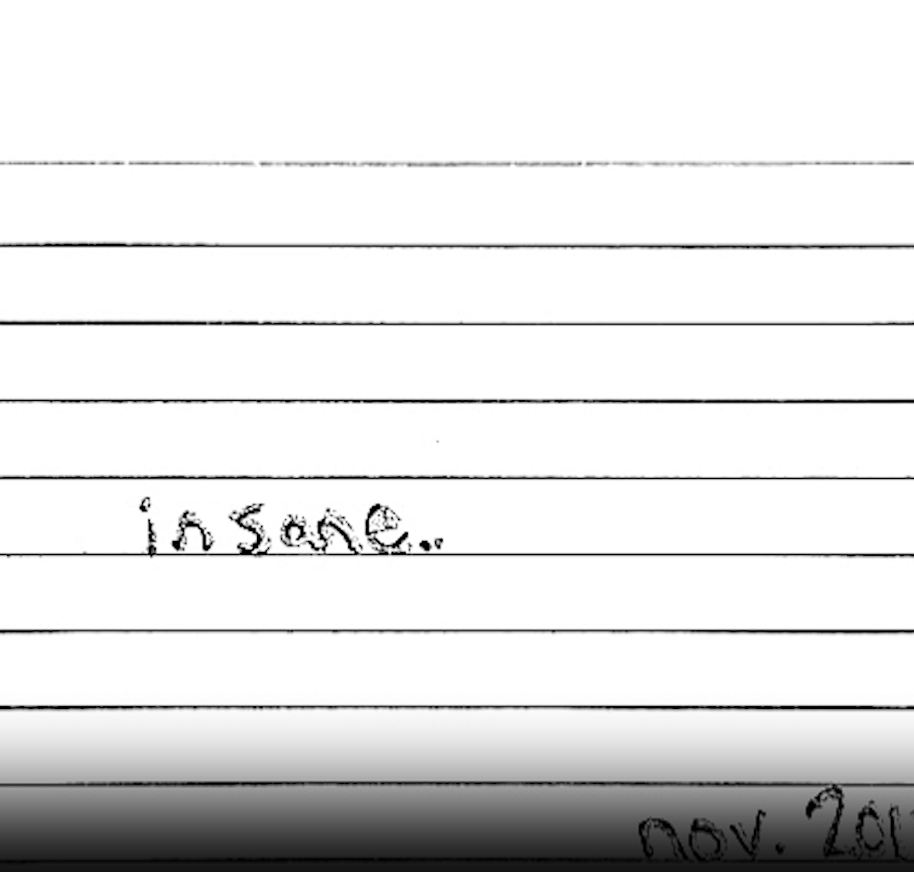 insane..
nov.